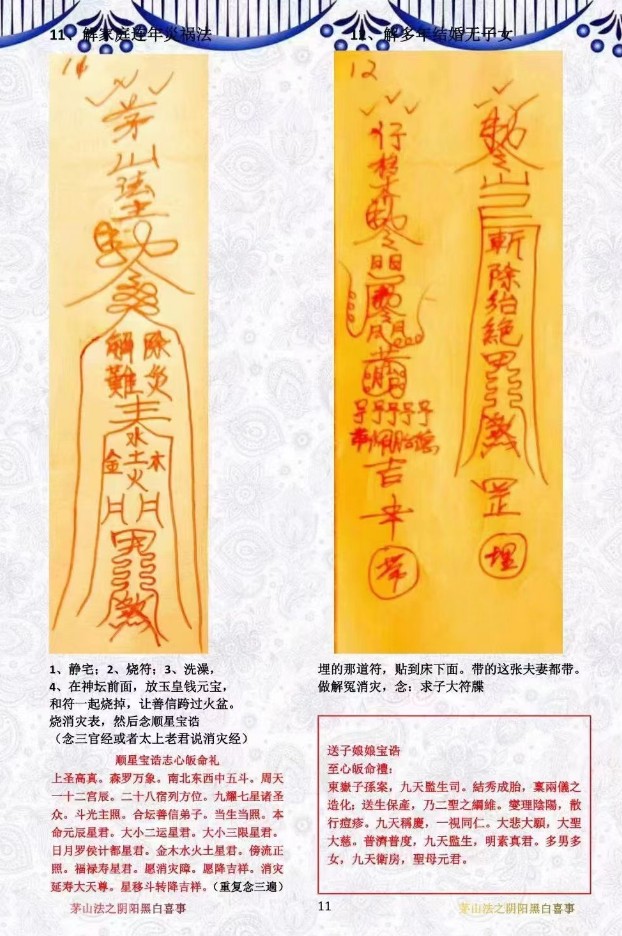 11、解家庭连年灾祸法
14
茅
山
法
主
勅
令
解 除
難 災
水
金 土 木
火
月 月
罡
煞
1、静宅；2、烧符；3、洗澡，
4、在神坛前面，放玉皇钱元宝，
和符一起烧掉，让善信跨过火盆。
烧消灾表，然后念顺星宝诰
（念三官经或者太上老君说消灾经）
顺星宝诰志心皈命礼
上圣高真。森罗万象。南北东西中五斗。周天
一十二宫辰。二十八宿列方位。九耀七星诸圣
众。斗光主照。合坛善信弟子。当生当照。本
命元辰星君。大小二运星君。大小三限星君。
日月罗侯计都星君。金木水火土星君。傍流正
照。福禄寿星君。愿消灾障。愿降吉祥。消灾
延寿大天尊。星移斗转降吉祥。（重复念三遍）
12、解多年结婚无子女
12
勅
令
斬
除
絕
煞
罡
埋
勅
令
子子子子子
吉
帶
埋的那道符，贴到床下面。带的这张夫妻都带。
做解冤消灾，念：求子大符牒
送子娘娘宝诰
至心皈命禮：
東嶽子孫案，九天監生司。結秀成胎，稟兩儀之
造化；送生保產，乃二聖之綱維。燮理陰陽，散
行痘疹。九天稱慶，一視同仁。大悲大願，大聖
大慈。普濟普度，九天監生，明素真君。多男多
女，九天衛房，聖母元君。
茅山法之阴阳黑白喜事
11
茅山法之阴阳黑白喜事